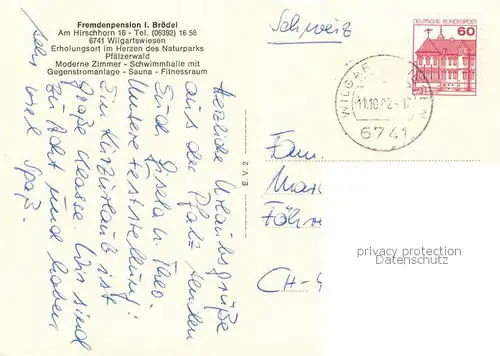 Fremdenpension I. Brödel
Am Hirschhorn 16 - Tel. (06392) 16 58
6741 Wilgartswiesen
Erholungsort im Herzen des Naturparks
Pfälzerwald
Moderne Zimmer - Schwimmhalle mit
Gegenstromanlage - Sauna - Fitnessraum
Schweiz
DEUTSCHE BUNDESPOST
60
11.10.82
6741
E. V. 2
Herzliche Urlaubsgrüße
aus der Pfalz senden
Euch Gisela u. Theo.
Unsere Feststellung:
Ein Kurzurlaub ist
große Klasse. Wir sind
zu Acht und haben
sehr viel Spaß.
Fam.
CH-
privacy protection